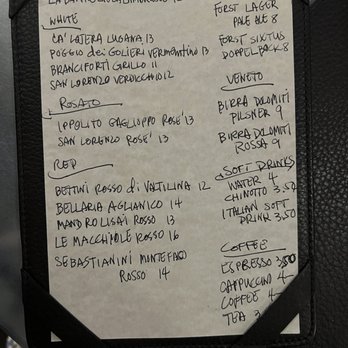 WHITE
CA' LOJERA LUGANA 13
POGGIO dei GOLIERI VERMENTINO 13
BRANCIFORTI GRILLO 11
SAN LORENZO VERDICCHIO 12
ROSATO
IPPOLITO GAGLIOPPO ROSE' 13
SAN LORENZO ROSE' 13
RED
BETTINI ROSSO di VALTILINA 12
BELLARIA AGLIANICO 14
MANDROLISAI ROSSO 13
LE MACCHIOLE ROSSO 16
SEBASTIANINI MONTEFALCO
ROSSO 14
FORST LAGER
PALE ALE 8
FORST SIXTUS
DOPPELBACK 8
VENETO
BIRRA DOLOMITI
PILSNER 9
BIRRA DOLOMITI
ROSSA 9
SOFT DRINKS
WATER 4
CHINOTTO 3.50
ITALIAN SOFT
DRINK 3.50
COFFEE
ESPRESSO 3.50
CAPPUCCINO 4
COFFEE 4
TEA 3